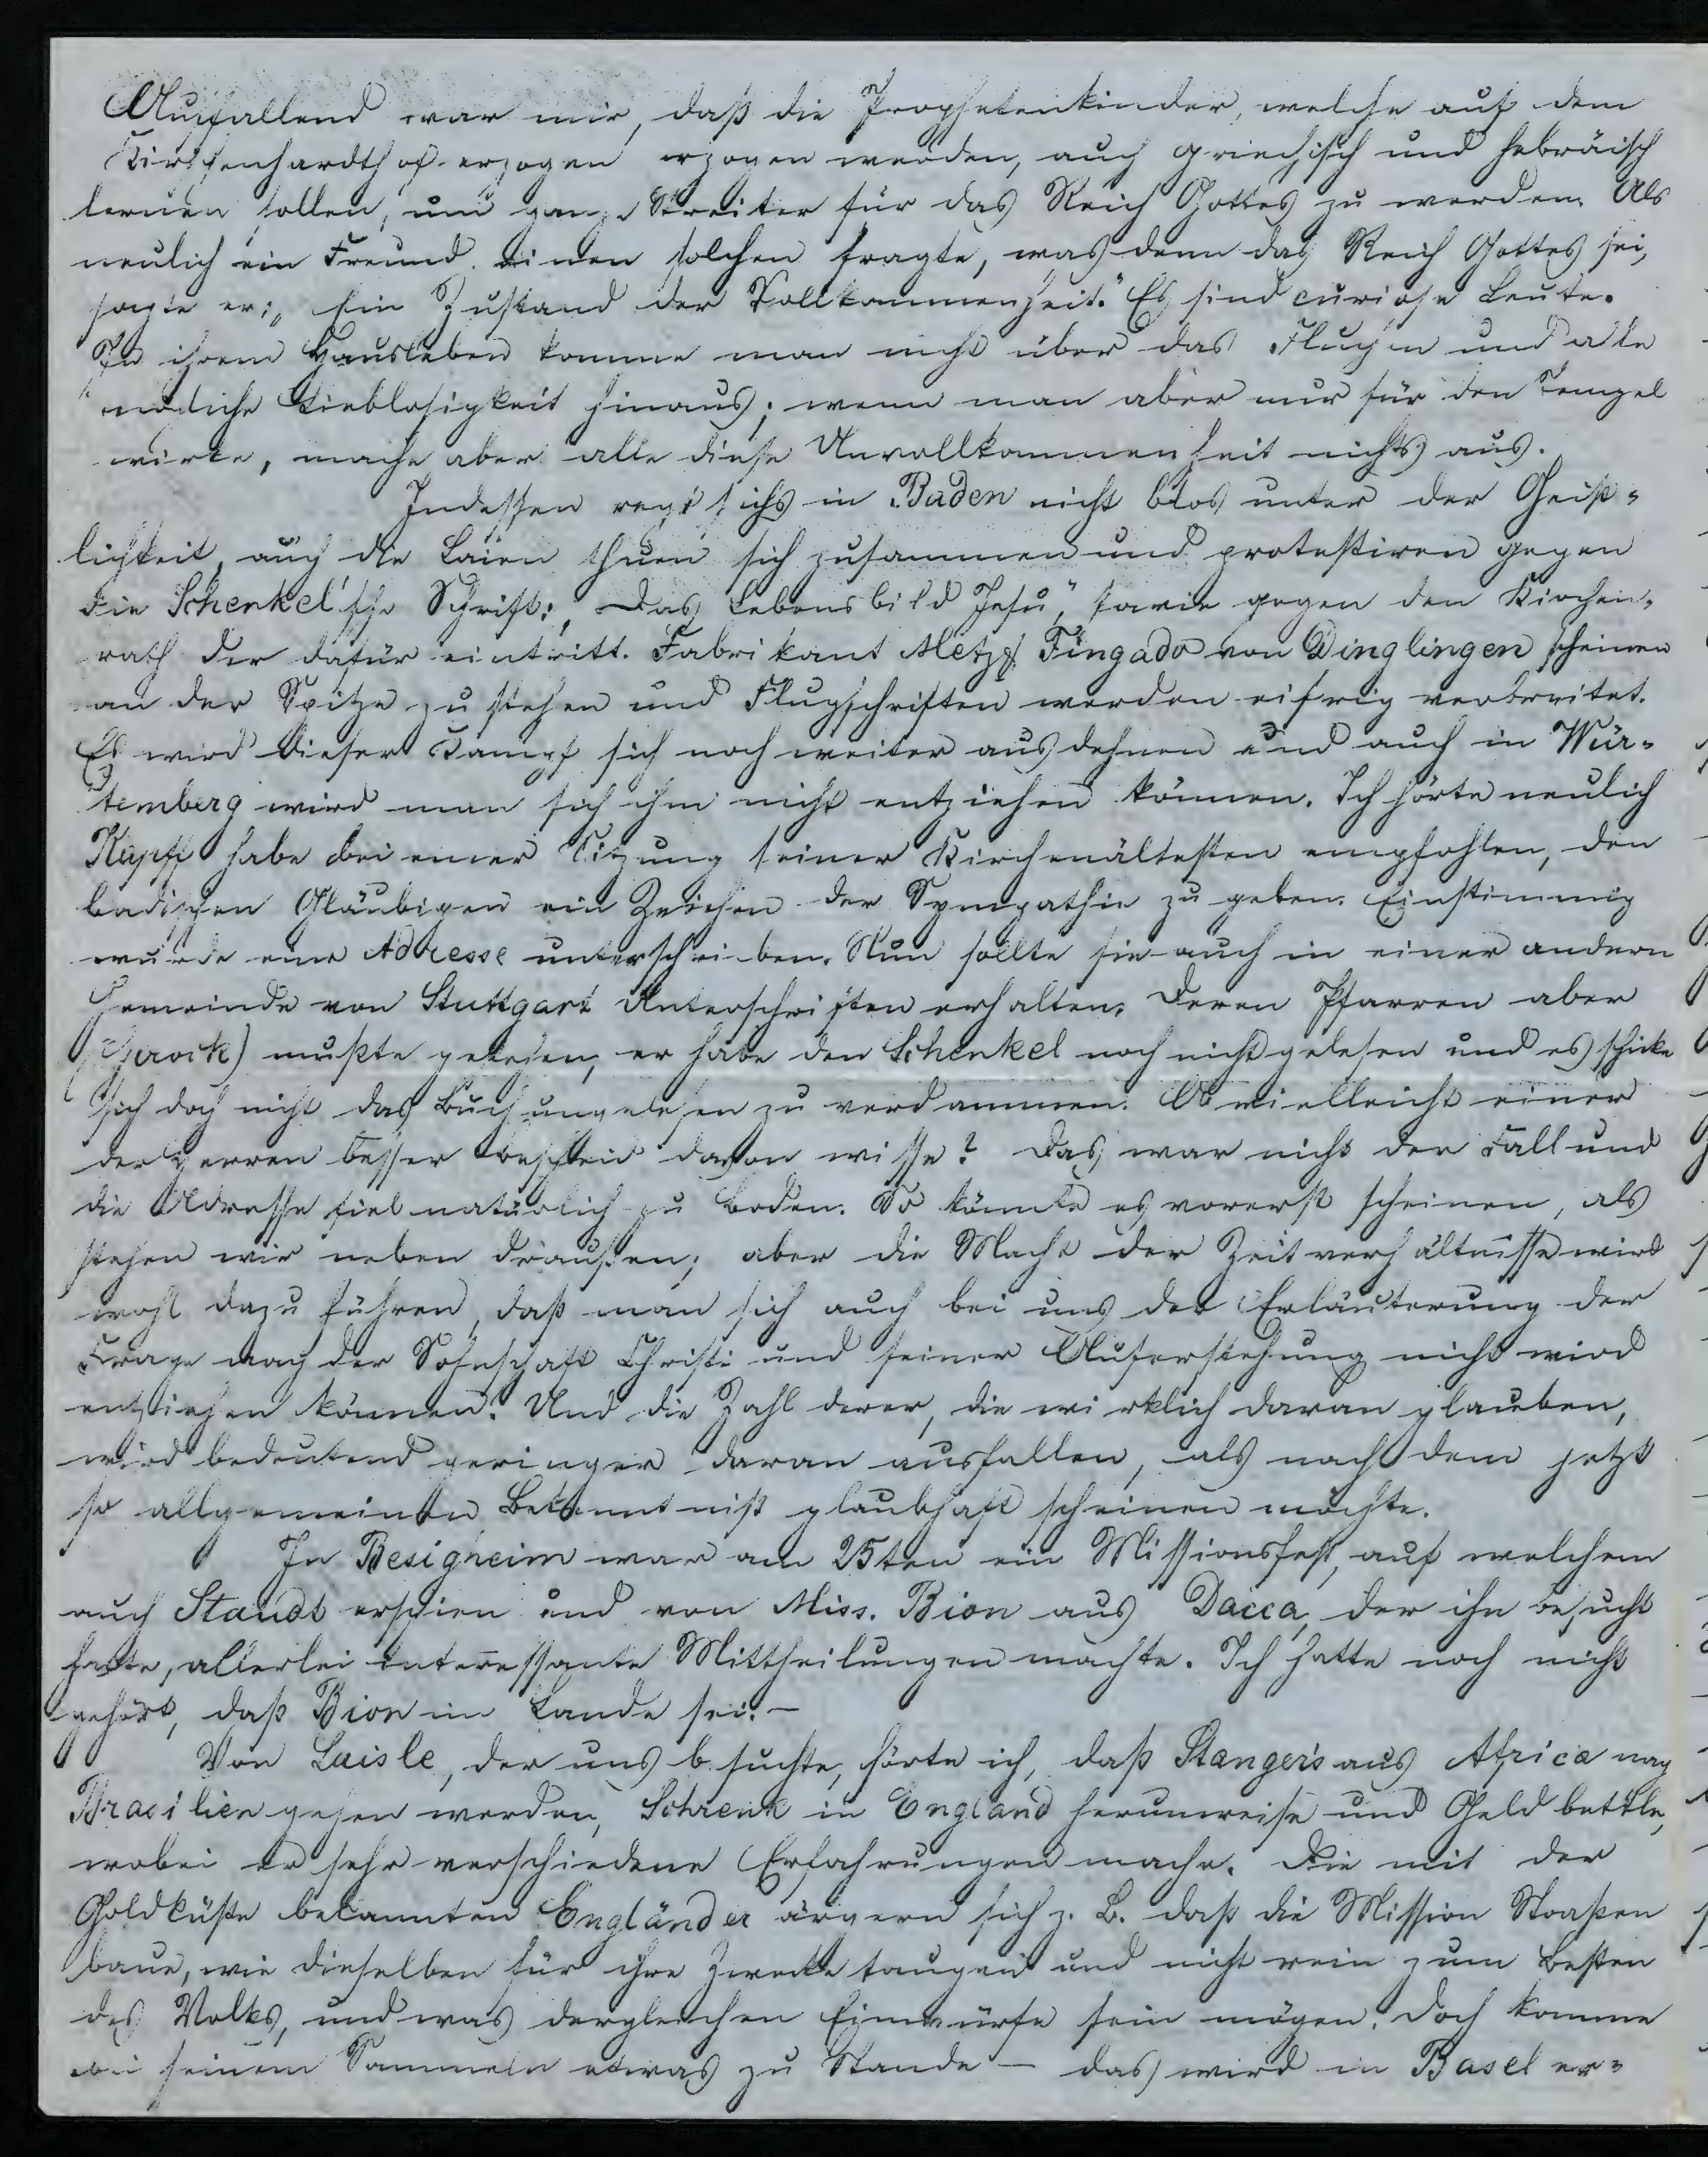 Auffallend war mir, daß die Prophetenkinder, welche auf dem
Kirschenhardthof erzogen erzogen werden, auch griechisch und hebräisch
lernen sollen, um ganze Streiter für das Reich Gottes zu werden. Als
neulich ein Freund einen solchen fragte, was denn das Reich Gottes sei,
sagte er: „Ein Zustand der Vollkommenheit." Es sind curiose Leute.
In ihrem Hausleben komme man nicht über das Fluchen und alle
mögliche Lieblosigkeit hinaus; wenn man aber nur für den Tempel
wirke, mache aber alle diese Unvollkommenheit nichts aus.
Indessen regt sichs in Baden nicht blos unter der Geist-
lichkeit, auch die Laien thuen sich zusammen und protestiren gegen
die Schenkel'sche Schrift: „Das Lebensbild Jesu," sowie gegen den Kirchen-
rath der dafür eintritt. Fabrikant Metz & Fingado von Dinglingen scheinen
an der Spitze zu stehen und Flugschriften werden eifrig verbreitet.
Es wird dieser Kampf sich noch weiter ausdehnen und auch in Wür-
temberg wird man sich ihm nicht entziehen können. Ich hörte neulich
Kapff habe bei einer Sitzung seiner Kirchenältesten empfohlen, den
badischen Gläubigen ein Zeichen der Sympathie zu geben. Einstimmig
wurde eine Adresse unterschrieben. Nun sollte sie auch in einer andern
Gemeinde von Stuttgart Unterschriften erhalten. Deren Pfarrer aber
(Gerock) mußte gestehen, er habe den Schenkel noch nicht gelesen und es schicke
sich doch nicht das Buch ungelesen zu verdammen. Ob vielleicht einer
der Herren besser Bescheid davon wisse? Das war nicht der Fall und
die Adresse fiel natürlich zu Boden. So könnte es vorerst scheinen, als
stehen wir neben draußen; aber die Macht der Zeitverhältnisse wird
wohl dazu führen, daß man sich auch bei uns der Erläuterung der
Frage nach der Sohnschaft Christi und seiner Auferstehung nicht wird
entziehen können. Und die Zahl derer, die wirklich daran glauben,
wird bedeutend geringer daran ausfallen, als nach dem jetzt
so allgemeinen Bekenntniß glaubhaft scheinen möchte.
In Besigheim war am 25ten ein Missionsfest, auf welchem
auch Staudt erschien und von Miss. Bion aus Dacca, der ihn besucht
hatte, allerlei interessante Mittheilungen machte. Ich hatte noch nicht
gehört, daß Bion im Lande sei. -
Von Laisle, der uns besuchte, hörte ich, daß Stangers aus Africa nach
Brasilien gehen werden, Schrenk in England herumreise und Geld bettle,
wobei er sehr verschiedene Erfahrungen mache. Die mit der
Goldküste bekannten Engländer ärgern sich z. B. daß die Mission Straßen
baue, wie dieselben für ihre Zwecke taugen und nicht rein zum Besten
des Volks, und was dergleichen Einwürfe sein mögen. Doch komme
bei seinem Sammeln etwas zu Stande - das wird in Basel er-